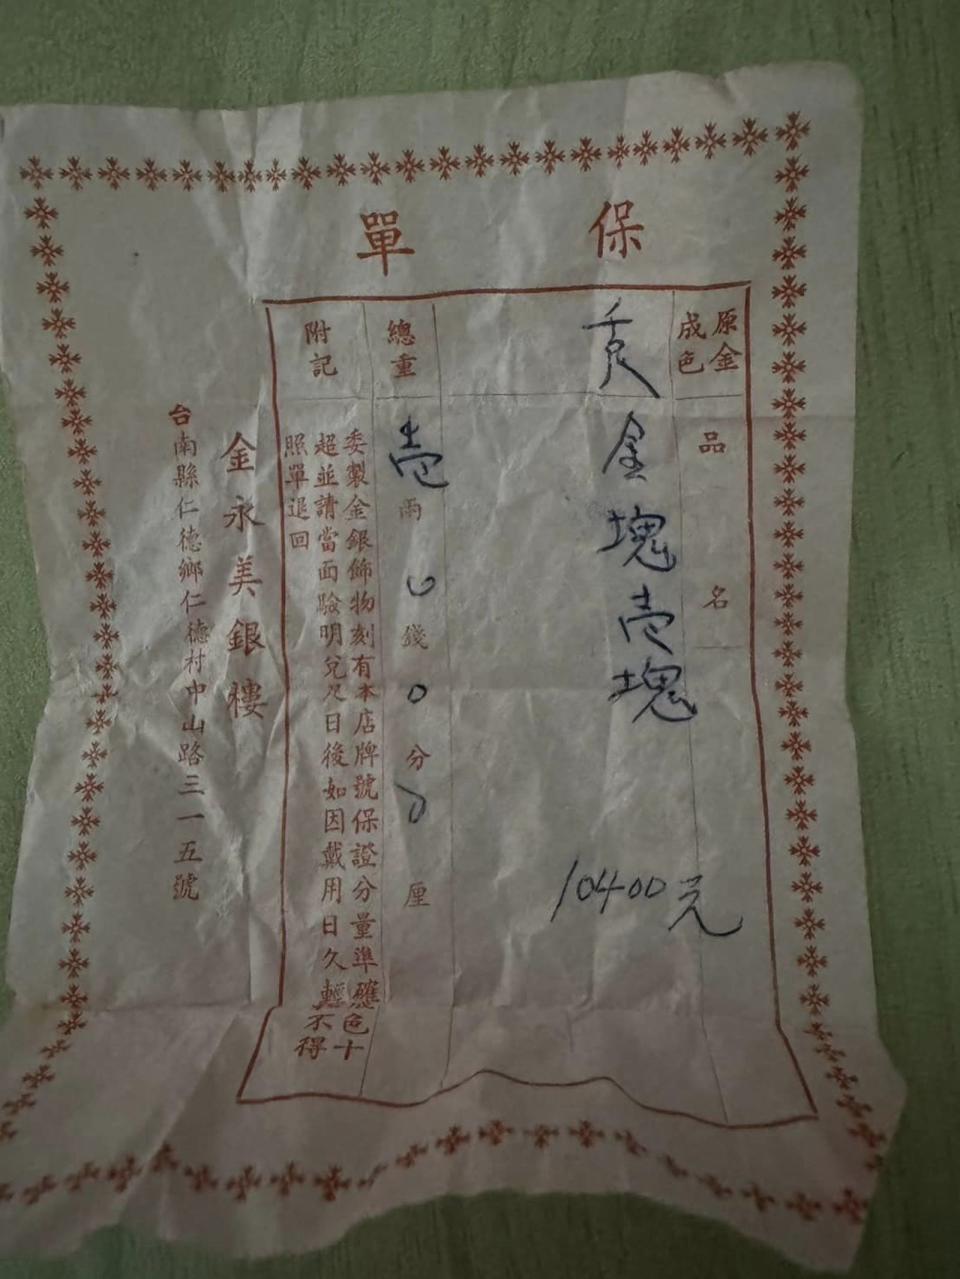 保單
原金成色
品名
金塊壱塊
10400元
總重
壱兩0錢0分0厘
附記
委製金銀飾物刻有本店牌號保證分量準確色十
超並請當面驗明兌尺日後如因戴用日久輕不得
照單退回
金永美銀樓
台南縣仁德鄉仁德村中山路三一五號